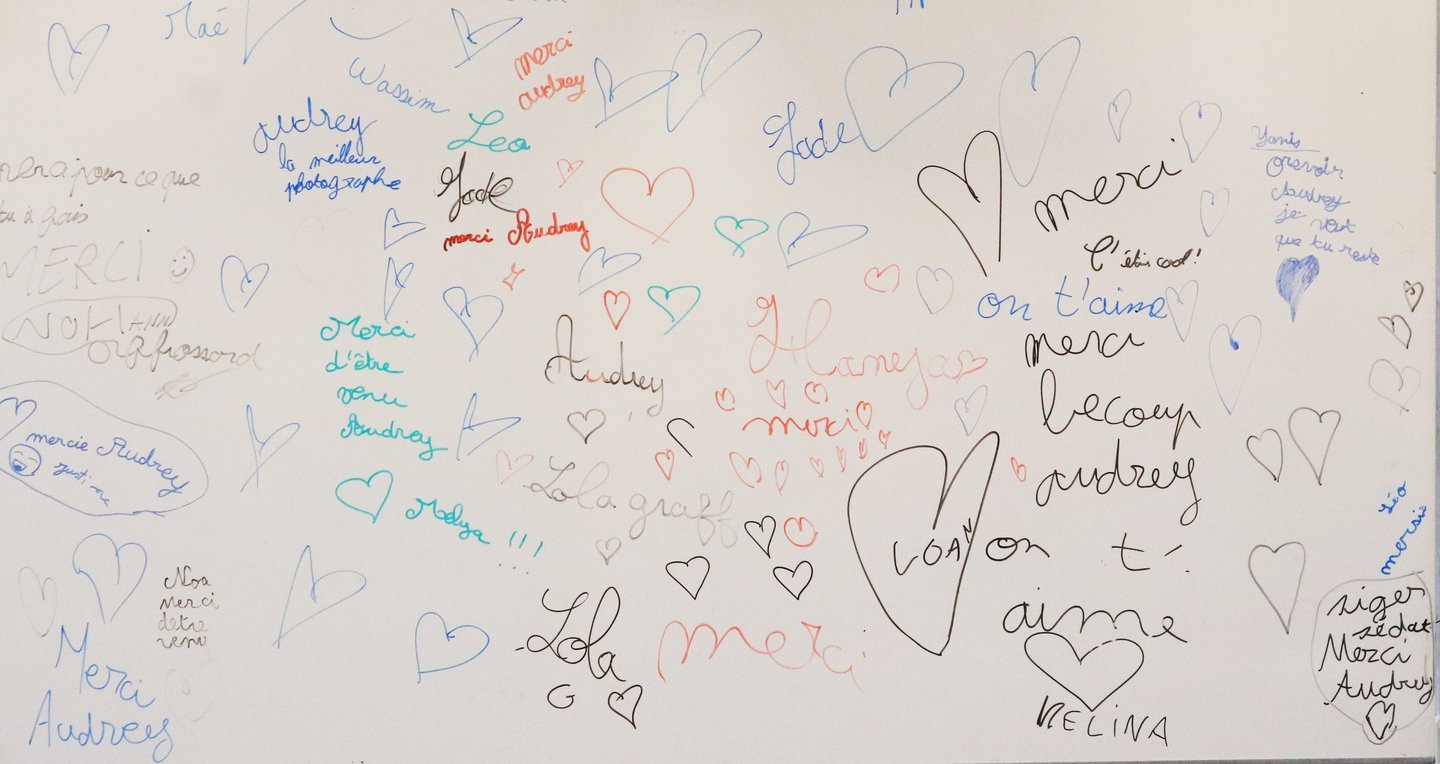 Maé
Wassim
merci
audrey
Audrey
la meilleur
photographe
Leo
Jade
merci Audrey
Jade
merci
C'étai cool!
on t'aime
merci
becoup
audrey
on t'
aime
KELINA
LOAN
Yanis
orevoir
Audrey
je veut
que tu reste
merci pour ce que
tu a fais
MERCI
NOH
mercie Audrey
justine
Merci
d'être
venu
Audrey
Melya !!!
Audrey
merci
Lola graff
Noa
Merci
detre
venu
Merci
Audrey
Lola
G
merci
Léo
mersie
Merci
Audrey